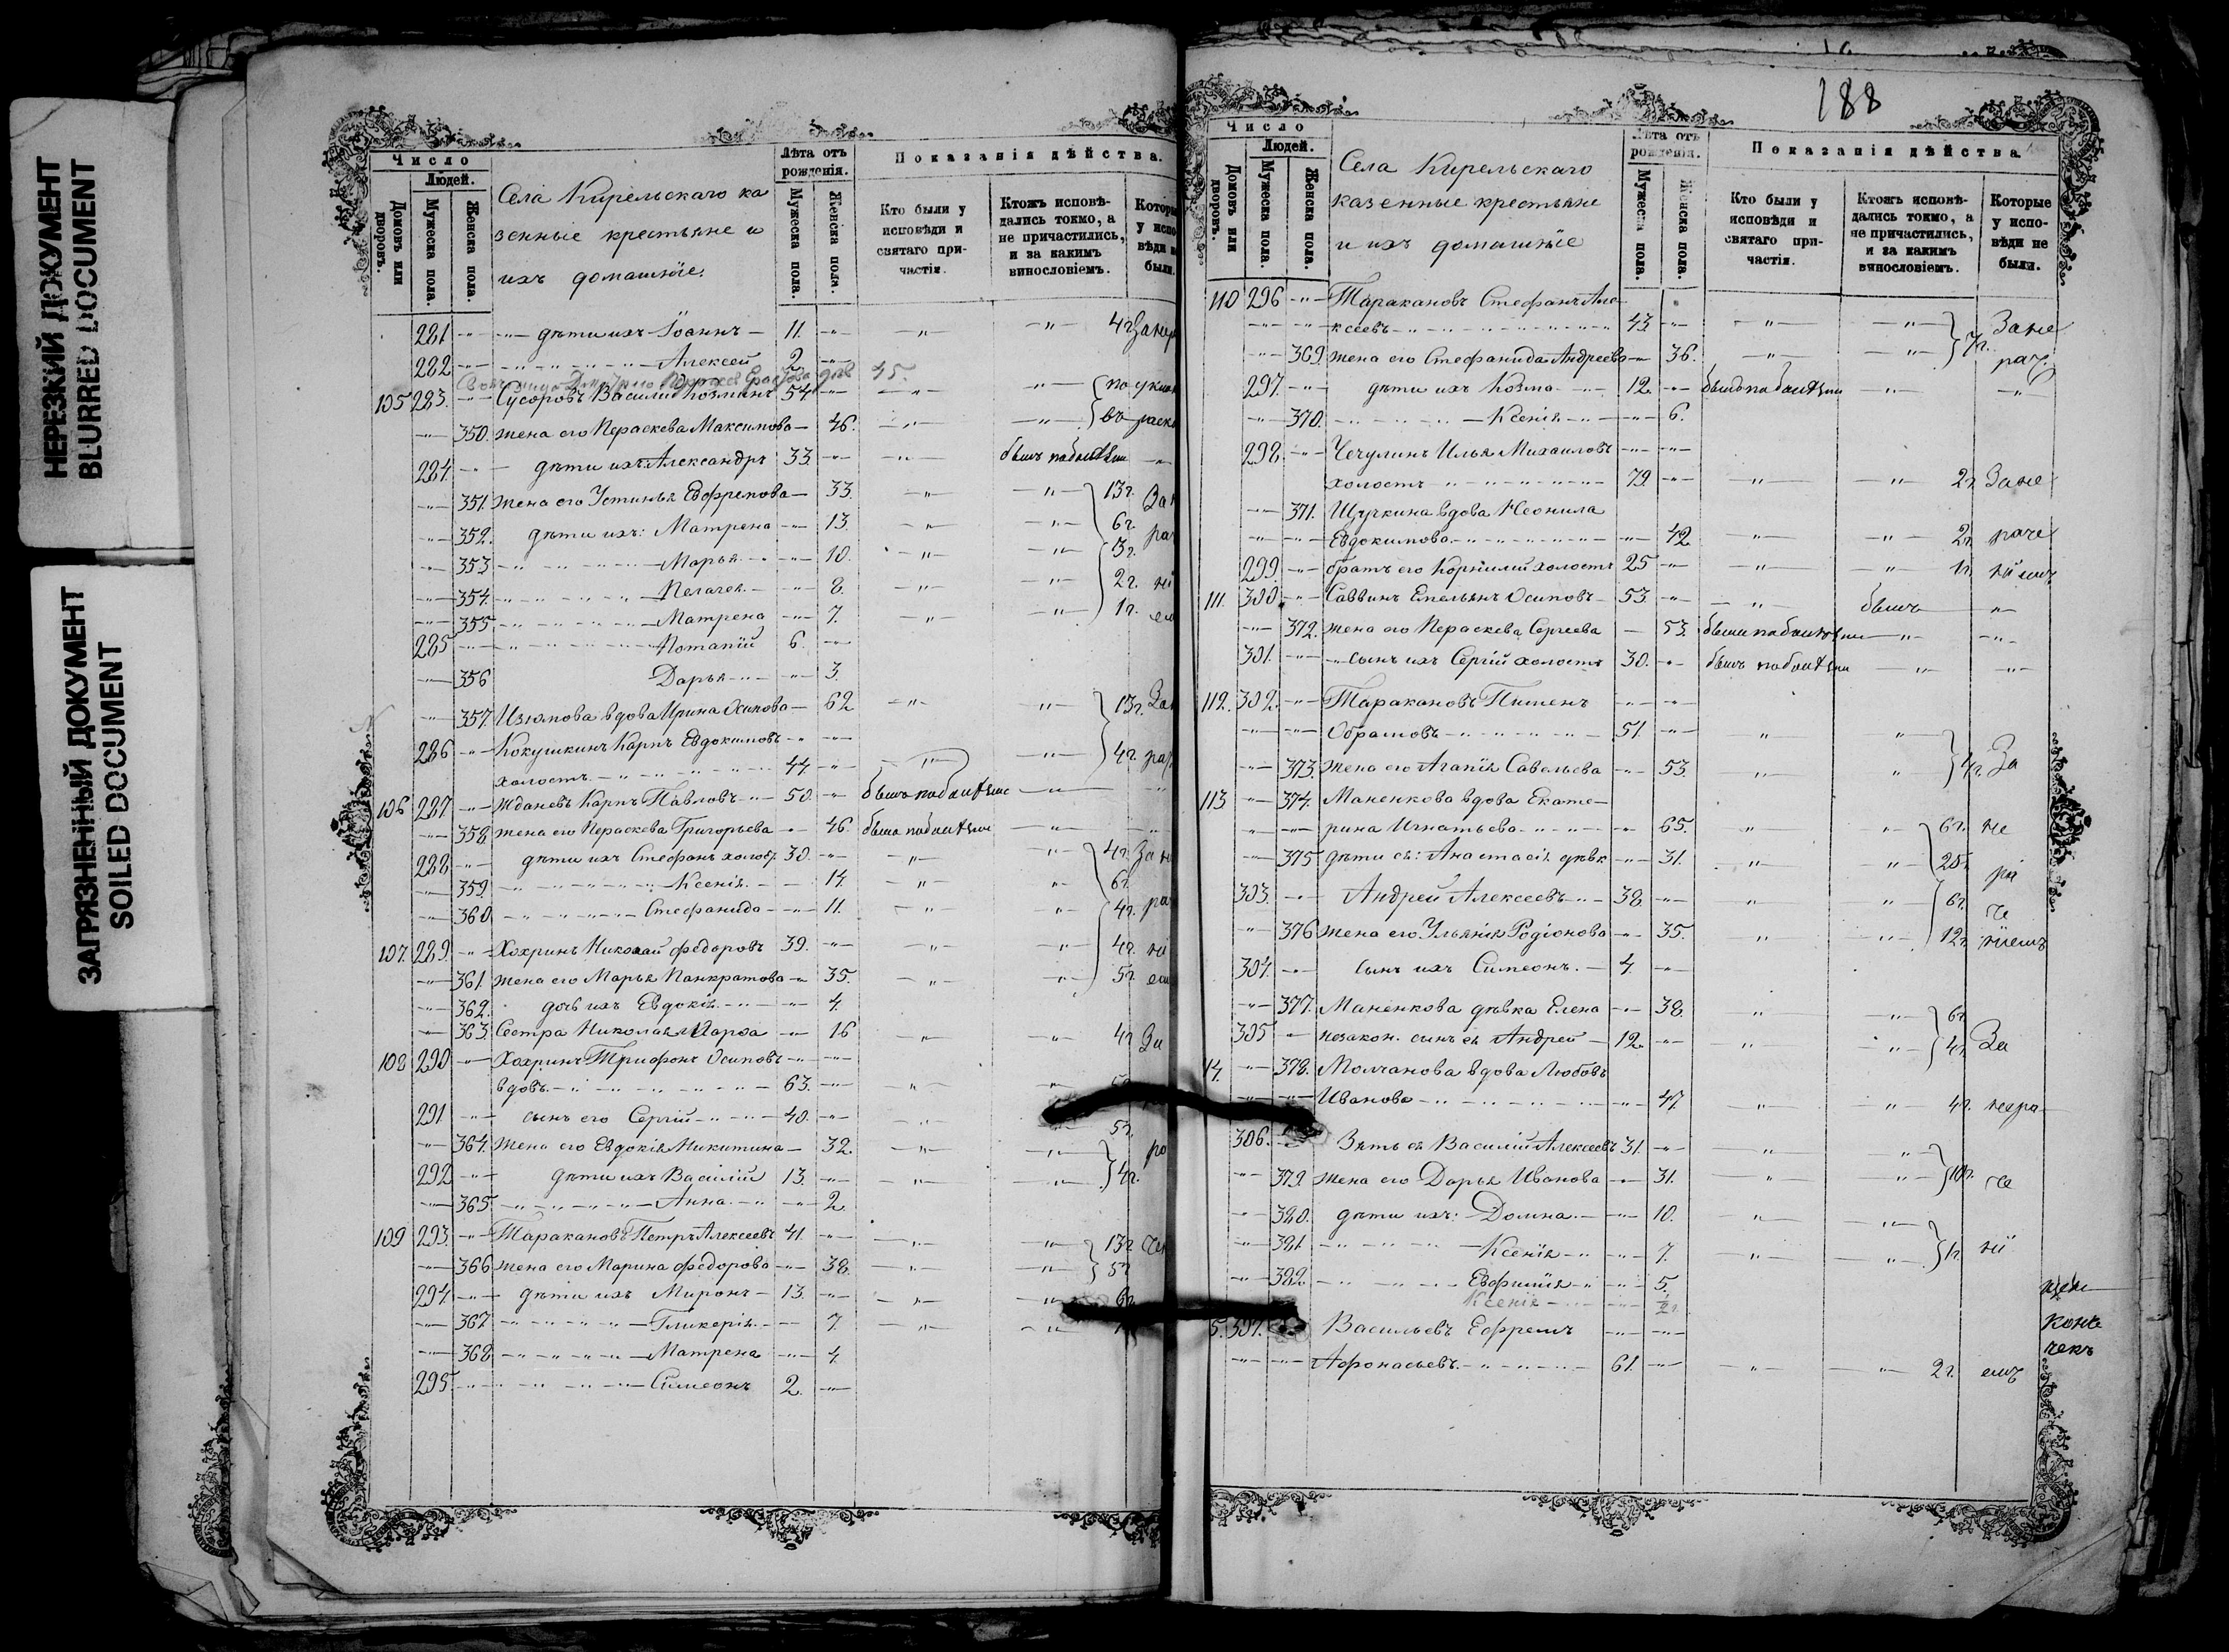 НЕРЕЗКИЙ ДОКУМЕНТ
BLURRED DOCUMENT
ЗАГРЯЗНЕННЫЙ ДОКУМЕНТ
SOILED DOCUMENT
Число
Людей.
Домовъ или дворовъ.
Мужеска пола.
Женска пола.
Села Кирельскаго ка
зенные крестьяне и
ихъ домашніе.
Лѣта отъ рожденія.
Мужеска пола.
Женска пола.
Показанія дѣйства.
Кто были у исповѣди и святаго причастія.
Ктожъ исповѣдались токмо, а не причастились, и за какимъ винословіемъ.
Которые у исповѣди не были.
281 дѣти ихъ Іоаннъ 11. 4 г.
282 Алексей 2
105 283. Сусоровъ Василий Козминъ 54
350. жена его Параскева Максимова 46.
284. дѣти ихъ: Александръ 33.
351. жена его Устинья Евфремова 33. 13 г.
352. дѣти ихъ: Матрена 13. 6 г.
353 Марья 10. 3 г.
354. Пелагея 8. 2 г.
355 Матрена 7. 1 г.
285 Потапій 6.
356 Дарья 3.
357. Изюмова вдова Ирина Осипова 62 13 г.
286 Кокушкинъ Карпъ Евдокимовъ
холостъ 44 4 г.
106 287 Ждановъ Карпъ Павловъ 50.
358. жена его Параскева Григорьева 46.
288 дѣти ихъ Стефанъ холос. 30. 4 г.
359. Ксенія 14. 6 г.
360 Стефанида 11. 4 г.
107. 289. Хохринъ Николай Федоровъ 39. 4 г.
361. жена его Марья Панкратова 35. 5 г.
362. дочь ихъ Евдокія 4
363. Сестра Николая Марфа 16 4 г. За
108 290 Хохринъ Трифонъ Осиповъ
вдовъ 63.
291 сынъ его Сергій 40. 5 г.
364. жена его Евдокія Никитина 32.
292 дѣти ихъ Василій 13. 4 г.
365 Анна 2
109 293. Таракановъ Петръ Алексеевъ 41. 13 г.
366 жена его Марина Федорова 38. 5 г.
294. дѣти ихъ Миронъ 13. 6 г.
367 Гликерія 7.
368 Матрена 4
295. Симеонъ 2.
188
Число
Людей.
Домовъ или дворовъ.
Мужеска пола.
Женска пола.
Села Кирельскаго
казенные крестьяне
и ихъ домашніе
Лѣта отъ рожденія.
Мужеска пола.
Женска пола.
Показанія дѣйства.
Кто были у исповѣди и святаго причастія.
Ктожъ исповѣдались токмо, а не причастились, и за какимъ винословіемъ.
Которые у исповѣди не были.
110 296 Таракановъ Стефанъ Але
ксеевъ 43. За не
369. жена его Стефанида Андреева 36. рач.
297. дѣти ихъ Козма 12.
370. Ксенія 6.
298. Чечулинъ Илья Михаиловъ
холостъ 79. 2 г. За не
371. Щучкина вдова Неонила
Евдокимова 42. 2 г. раче
299. братъ его Корнилий холостъ 25 1 г. ніемъ
111. 300. Саввинъ Емельянъ Осиповъ 53.
372. жена его Параскева Сергеева 53.
301. сынъ ихъ Сергій холостъ 30.
112. 302. Таракановъ Пименъ
Обрамовъ 51.
373. жена его Агапія Савельева 53. 4 г. За
113 374. Маненкова вдова Екате
рина Игнатьева 65. 6 г. не
375 дѣти ея: Анастасія дѣвк 31. 20 г. ра
303. Андрей Алексеевъ 38 6 г. че
376 жена его Ульянія Родіонова 35. 12 г. ніемъ
304. сынъ ихъ Симеонъ 4.
377. Маненкова дѣвка Елена 38. 6 г.
305 незакон. сынъ ея Андрей 12. 4 г. За
14. 378. Молчанова вдова Любовь
Иванова 47. 4 г. нера
306. Зять ея Василій Алексеевъ 31.
379. жена его Дарья Иванова 31. 10 г. че
380. дѣти ихъ: Домна 10.
381. Ксенія 7. 1 г. ніи
382 Евфимія 5.
Ксенія ½ г.
5. 307. Васильевъ Ефремъ
Афонасьевъ 61. 2 г. емъ